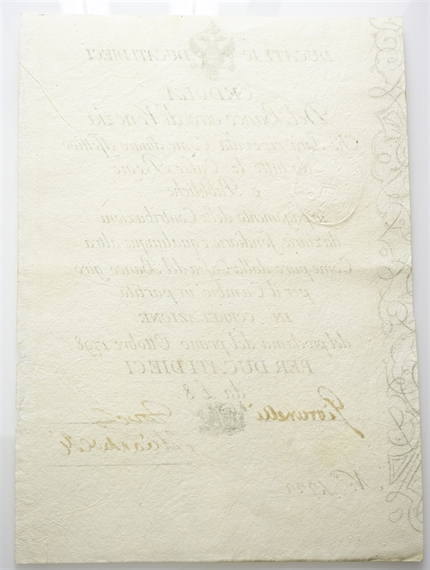 DUCATI DIECI DUCATI 10
CEDOLA
Del Banco Giro di Venezia
che sarà ricevuta come danaro effettivo
in tutte le Casse Regie
e Pubbliche
in pagamento delle Contribuzioni
dazione fondiaria e qualunque altra
Come pure dalla Cassa del Banco giro
per il Cambio in partita
IN CORRELAZIONE
del proclama del primo Ottobre 1798
PER DUCATI DIECI
da £ 8
Giovanelli
N.